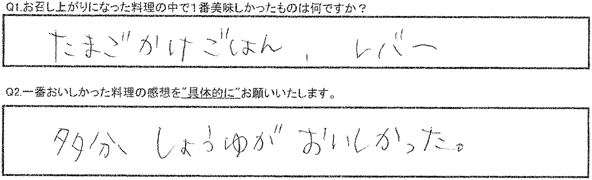 Q1.お召し上がりになった料理の中で1番美味しかったものは何ですか？
たまごかけごはん、レバー
Q2.一番おいしかった料理の感想を"具体的に"お願いいたします。
多分、しょうゆがおいしかった。